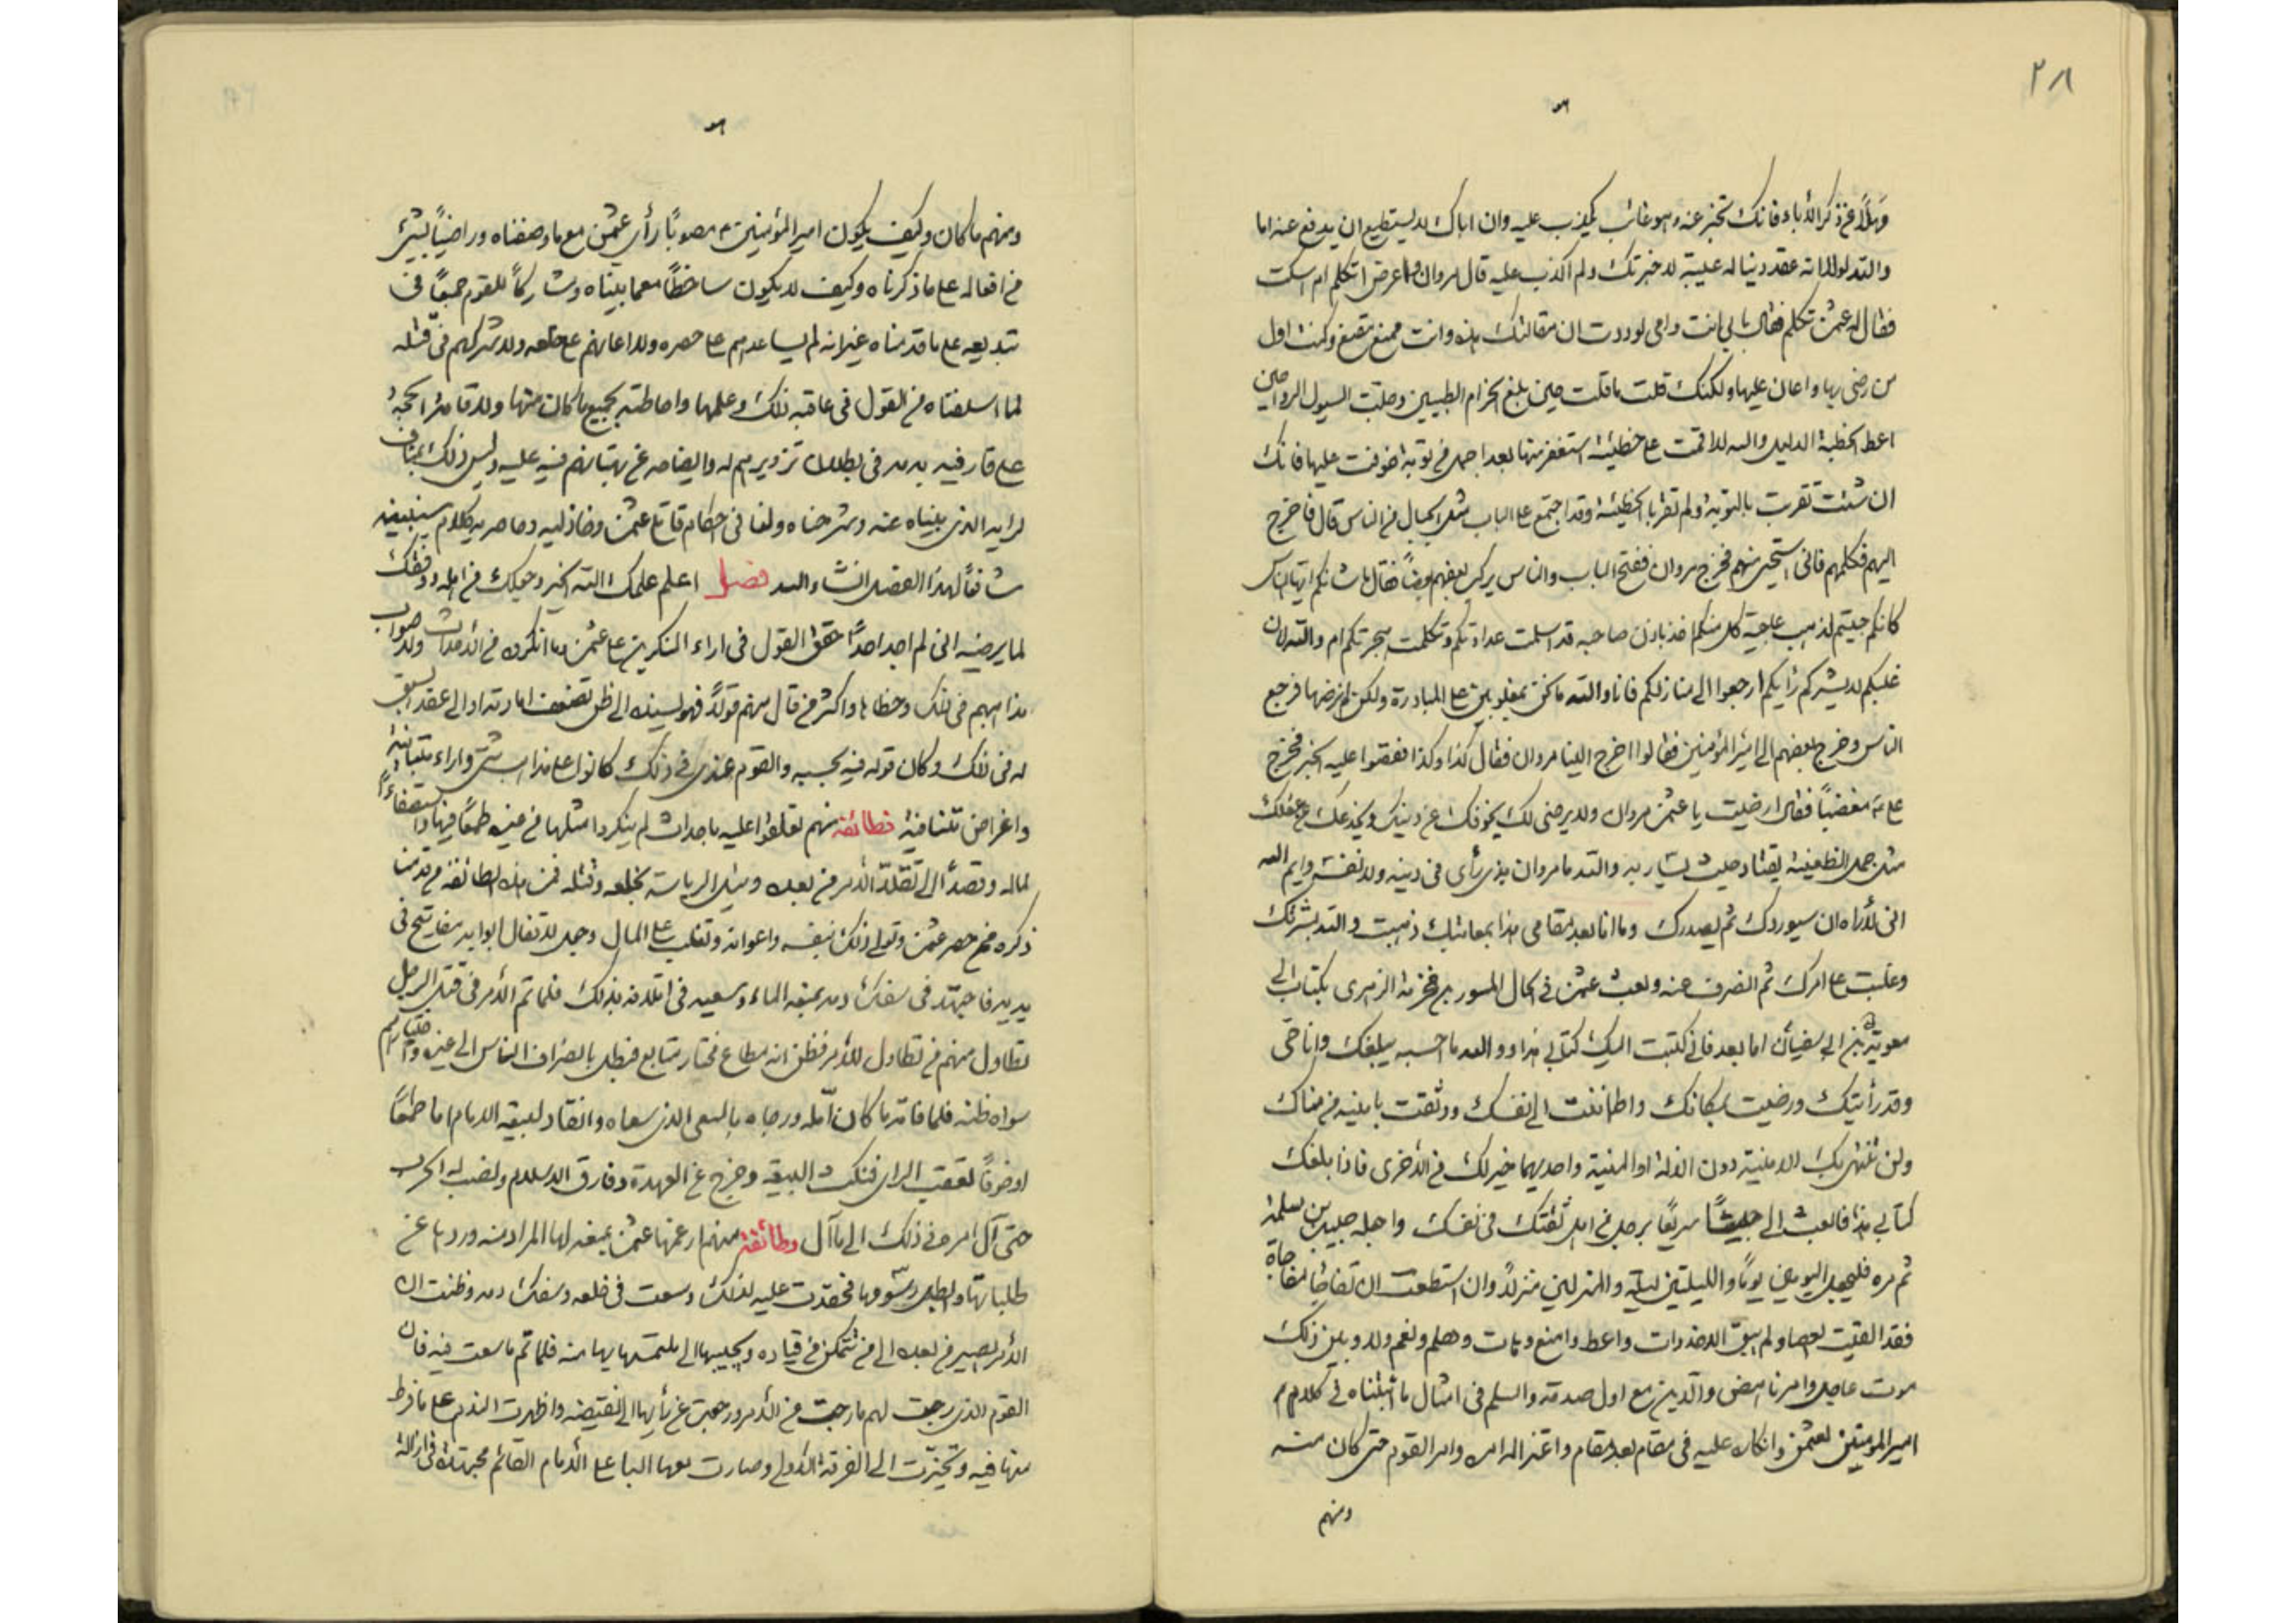 ٢٨
وهلا عن ذكر الآباء فانك تخبر عنه وهو غائب يكذب عليه وان اباك لا يستطيع ان يدفع عنه اما
والله لولا انه عقد دنيا له عليه لاخبرتك ولم اكذب عليه قال مروان اعرض اتكلم ام اسكت
فقال له عثمن تكلم فقال بابي انت وامي لوددت ان مقالتك هذه وانت ممنع وكنت اول
من رضى بها واعان عليها ولكنك قلت ما قلت حين بلغ الحزام الطبيين وحلت السيول الربا حين
اعطى الخطة الذليل والله لاقامة على خطيئة استغفر منها بعد اجمل من توبة خوفت عليها فانك
ان شئت تقربت بالتوبة ولم تقر بالخطيئة وقد اجتمع على الباب مثل الجبال من الناس قال فاخرج
اليهم فكلمهم فاني استحيى منهم فخرج مروان ففتح الباب والناس يركب بعضهم بعضاً فقال ما شانكم ايها الناس
كانكم جئتم لنهب
غلبكم ارجعوا الى منازلكم فانا والله ما نحن بمغلوبين على المبادرة فرجع
الناس وخرج بعضهم الى امير المؤمنين فقالوا اخرج الينا مروان فقال كذا وكذا فقصوا عليه الخبر فخرج
على مغضباً فقال ارضيت يا عثمن مروان ولا يرضى لك عن دينك ويخدعك عن عقلك
مثل جمل الظعينة يقتاد حيث يسار به والله ما مروان بذى رأى في دينه ولا نفسه وايم الله
انى لأراه ان سيوردك ثم يصدرك وما انا بعد مقامي هذا بمعاتبك ذهبت والله بشرفك
وغلبت على امرك ثم انصرف عنه وبعث عثمن في الحال المسور بن مخرمة الزهري بكتاب الى
معوية بن ابى سفيان اما بعد فانى كتبت اليك كتابى هذا والله ما احسبه يبلغك وانا حى
وقد رأيتك ورضيت بمكانك واطمأننت الى نفسك ووثقت بامنية من مناك
ولن تنتهى بك الامنية دون الذلة او المنية واحديهما خير لك من الأخرى فاذا بلغك
كتابى هذا فابعث الى جيشاً سريعاً برجل من اهل ثقتك في نفسك واجعله حبيب بن مسلمة
ثم مره فليجعل اليومين يوماً والليلتين ليلة والمنزلين منزلاً وان استطعت ان تفاجئنا مفاجاة
فقد القيت العصا ولم يبق الا خذ وهات واعط وامنع وهات وهلم ونعم ولا وبين ذلك
موت عاجل وامر ناهض والدين مع اول صدمة والسلم في امثال ما اثبتناه في كلام
امير المؤمنين لعثمن وانكاره عليه في مقام بعد مقام واعتزاله امره وامر القوم حتى كان منه
ومنهم
ومنهم ما كان وكيف يكون امير المؤمنين مصوباً رأى عثمن مع ما وصفناه وراضياً بشئ
من افعاله على ما ذكرناه وكيف لا يكون ساخطاً مع ما بيناه ومشاركاً للقوم جميعاً في
تبديعه على ما قدمناه غير انه لم يساعدهم على حصره ولا اعانهم على خلعه ولا شركهم في قتله
لما اسلفناه من القول في عاقبة ذلك وعلمها واحاطته بجميع ما كان منها ولاقامة الحجة
على قارفيه بدمه في بطلان تزويرهم له وايضاحه عن بهتانهم فيه عليه وليس ذلك بمناف
لرايه الذى بيناه عنه وشرحناه ولنا في احكام قاتلى عثمن وخاذليه وحاصريه كلام سنبينه
شافياً لهذا الفصل انشاء الله فصل اعلم علمك الله الخير وجعلك من اهله ووفقك
لما يرضيه انى لم اجد احداً حقق القول في اراء المنكرين على عثمن وما انكروه من الأحداث ولا صواب
مذاهبهم في ذلك وخطاها واكثر من قال منهم قولاً فهو لسبق
له في ذلك وكان قوله فيه بحسبه والقوم عندى في ذلك كانوا على مذاهب شتى واراء متباينة
واغراض متنافية فطائفة منهم تعلقوا عليه باحداث لم ينكروا مثلها من غيره طمعاً
لماله وقصداً الى تقلد الأمر من بعده ونيل الرياسة بخلعه وقتله فمن هذه الطائفة من قدمنا
ذكره ممن حصر عثمن وتولى ذلك بنفسه واعوانه وتغلب على المال وجعل لاقفال ابوابه مفاتيح في
يديه فاجتهد في سفك دمه بمنعه الماء وسعيه في اتلافه بذلك فلما تم الأمر في قتل الرجل
تطاول منهم من تطاول للأمر فظن انه مطاع مختار متابع فبطل بانصراف الناس الى غيره واختيارهم
سواه ظنه فلما فاته ما كان أمله ورجاه بالسعى الذى سعاه وانقاد لبيعة الامام اما طمعاً
او خوفاً تعقب الراى فنكث البيعة وخرج عن العهدة وفارق الاسلام ونصب له الحرب
حتى آل امره في ذلك الى ما آل وطائفة منهم ارغمها عثمن بمنعه لها المراد منه وردها عن
طلباتها فحقدت عليه لذلك وسعت في خلعه وسفك دمه وظنت ان
الأمر يصير من بعده الى من تتمكن من قياده ويجيبها الى ملتمسها منه فلما تم ما سعت فيه فات
القوم الذى رجت لهم ما رجت من الأمر ورجعت عن رأيها الى نقيضه واظهرت الندم على ما فرط
منها فيه وتحيزت الى الفرقة الأولى وصارت معها البا على الأمام القائم مجتهدة في ازالة